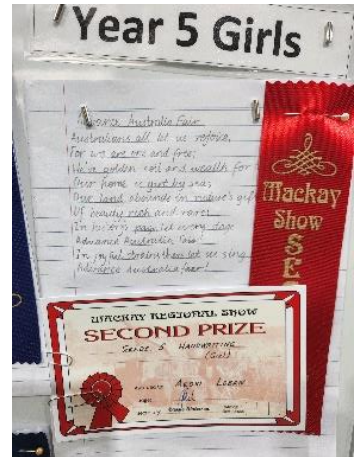 Year 5 Girls
Advance Australia Fair
Australians all let us rejoice,
For we are one and free;
We've golden soil and wealth for
Our home is girt by sea;
Our land abounds in nature's gifts
Of beauty rich and rare;
In history's page, let every stage
Advance Australia Fair.
In joyful strains then let us sing,
Advance Australia Fair!
Mackay
Show
SEC
MACKAY REGIONAL SHOW
SECOND PRIZE
HANDWRITING
(Girl)